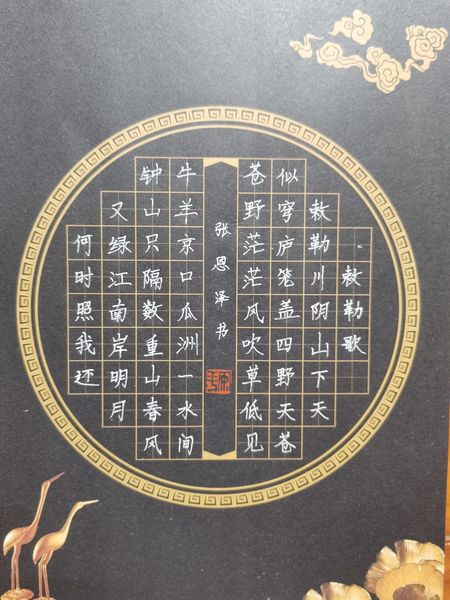 敕勒歌
敕勒川阴山下天
似穹庐笼盖四野天苍
苍野茫茫风吹草低见
张恩泽书
牛羊京口瓜洲一水间
钟山只隔数重山春风
又绿江南岸明月
何时照我还